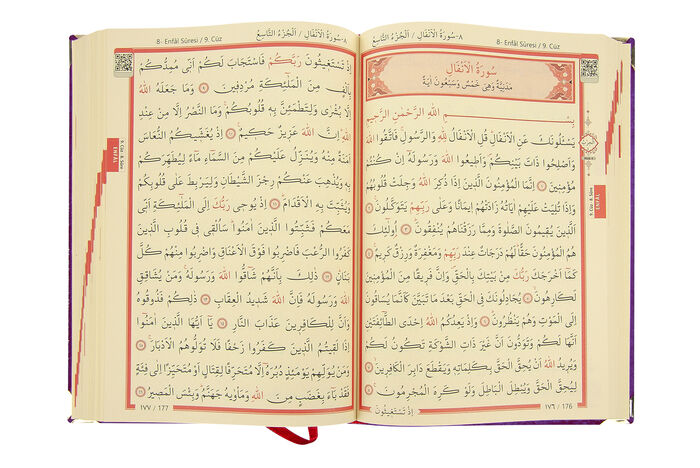 8- Enfâl Sûresi / 9. Cüz ٨-سُورَةُ الْاَنْفَالِ / اَلْجُزْءُ التَّاسِعُ
سُورَةُ الْاَنْفَالِ
مَدَنِيَّةٌ وَهِيَ خَمْسٌ وَسَبْعُونَ اٰيَةً
بِسْمِ اللّٰهِ الرَّحْمٰنِ الرَّحِيمِ
يَسْـَٔلُونَكَ عَنِ الْاَنْفَالِ قُلِ الْاَنْفَالُ لِلّٰهِ وَالرَّسُولِ فَاتَّقُوا اللّٰهَ
وَاَصْلِحُوا ذَاتَ بَيْنِكُمْ وَاَطِيعُوا اللّٰهَ وَرَسُولَهُٓ اِنْ كُنْتُمْ
مُؤْمِنِينَ ﴿١﴾ اِنَّمَا الْمُؤْمِنُونَ الَّذِينَ اِذَا ذُكِرَ اللّٰهُ وَجِلَتْ قُلُوبُهُمْ
وَاِذَا تُلِيَتْ عَلَيْهِمْ اٰيَاتُهُ زَادَتْهُمْ اِيمَانًا وَعَلٰى رَبِّهِمْ يَتَوَكَّلُونَ ﴿٢﴾
اَلَّذِينَ يُقِيمُونَ الصَّلٰوةَ وَمِمَّا رَزَقْنَاهُمْ يُنْفِقُونَ ﴿٣﴾ اُو۬لٰٓئِكَ
هُمُ الْمُؤْمِنُونَ حَقًّا لَهُمْ دَرَجَاتٌ عِنْدَ رَبِّهِمْ وَمَغْفِرَةٌ وَرِزْقٌ كَرِيمٌ ﴿٤﴾
كَمَٓا اَخْرَجَكَ رَبُّكَ مِنْ بَيْتِكَ بِالْحَقِّ وَاِنَّ فَرِيقًا مِنَ الْمُؤْمِنِينَ
لَكَارِهُونَ ﴿٥﴾ يُجَادِلُونَكَ فِي الْحَقِّ بَعْدَ مَا تَبَيَّنَ كَاَنَّمَا يُسَاقُونَ
اِلَى الْمَوْتِ وَهُمْ يَنْظُرُونَ ﴿٦﴾ وَاِذْ يَعِدُكُمُ اللّٰهُ اِحْدَى الطَّٓائِفَتَيْنِ
اَنَّهَا لَكُمْ وَتَوَدُّونَ اَنَّ غَيْرَ ذَاتِ الشَّوْكَةِ تَكُونُ لَكُمْ
وَيُرِيدُ اللّٰهُ اَنْ يُحِقَّ الْحَقَّ بِكَلِمَاتِهِ وَيَقْطَعَ دَابِرَ الْكَافِرِينَ ﴿٧﴾
لِيُحِقَّ الْحَقَّ وَيُبْطِلَ الْبَاطِلَ وَلَوْ كَرِهَ الْمُجْرِمُونَ ﴿٨﴾
اِذْ تَسْتَغِيثُونَ
١٧٦ / 176
9. Cüz 8. Sûre
ENFÂL
8- Enfâl Sûresi / 9. Cüz ٨-سُورَةُ الْاَنْفَالِ / اَلْجُزْءُ التَّاسِعُ
اِذْ تَسْتَغِيثُونَ رَبَّكُمْ فَاسْتَجَابَ لَكُمْ اَنِّي مُمِدُّكُمْ
بِاَلْفٍ مِنَ الْمَلٰٓئِكَةِ مُرْدِفِينَ ﴿٩﴾ وَمَا جَعَلَهُ اللّٰهُ
اِلَّا بُشْرٰى وَلِتَطْمَئِنَّ بِهِ قُلُوبُكُمْ وَمَا النَّصْرُ اِلَّا مِنْ عِنْدِ
اللّٰهِ اِنَّ اللّٰهَ عَزِيزٌ حَكِيمٌ ﴿١٠﴾ اِذْ يُغَشِّيكُمُ النُّعَاسَ
اَمَنَةً مِنْهُ وَيُنَزِّلُ عَلَيْكُمْ مِنَ السَّمَٓاءِ مَٓاءً لِيُطَهِّرَكُمْ
بِهِ وَيُذْهِبَ عَنْكُمْ رِجْزَ الشَّيْطَانِ وَلِيَرْبِطَ عَلٰى قُلُوبِكُمْ
وَيُثَبِّتَ بِهِ الْاَقْدَامَ ﴿١١﴾ اِذْ يُوحِي رَبُّكَ اِلَى الْمَلٰٓئِكَةِ اَنِّي
مَعَكُمْ فَثَبِّتُوا الَّذِينَ اٰمَنُوا سَاُلْقِي فِي قُلُوبِ الَّذِينَ
كَفَرُوا الرُّعْبَ فَاضْرِبُوا فَوْقَ الْاَعْنَاقِ وَاضْرِبُوا مِنْهُمْ كُلَّ
بَنَانٍ ﴿١٢﴾ ذٰلِكَ بِاَنَّهُمْ شَٓاقُّوا اللّٰهَ وَرَسُولَهُ وَمَنْ يُشَاقِقِ
اللّٰهَ وَرَسُولَهُ فَاِنَّ اللّٰهَ شَدِيدُ الْعِقَابِ ﴿١٣﴾ ذٰلِكُمْ فَذُوقُوهُ
وَاَنَّ لِلْكَافِرِينَ عَذَابَ النَّارِ ﴿١٤﴾ يَٓا اَيُّهَا الَّذِينَ اٰمَنُٓوا
اِذَا لَقِيتُمُ الَّذِينَ كَفَرُوا زَحْفًا فَلَا تُوَلُّوهُمُ الْاَدْبَارَ ﴿١٥﴾
وَمَنْ يُوَلِّهِمْ يَوْمَئِذٍ دُبُرَهُٓ اِلَّا مُتَحَرِّفًا لِقِتَالٍ اَوْ مُتَحَيِّزًا اِلٰى فِئَةٍ
فَقَدْ بَٓاءَ بِغَضَبٍ مِنَ اللّٰهِ وَمَأْوٰيهُ جَهَنَّمُ وَبِئْسَ الْمَصِيرُ ﴿١٦﴾
١٧٧ / 177
9. Cüz 8. Sûre
ENFÂL